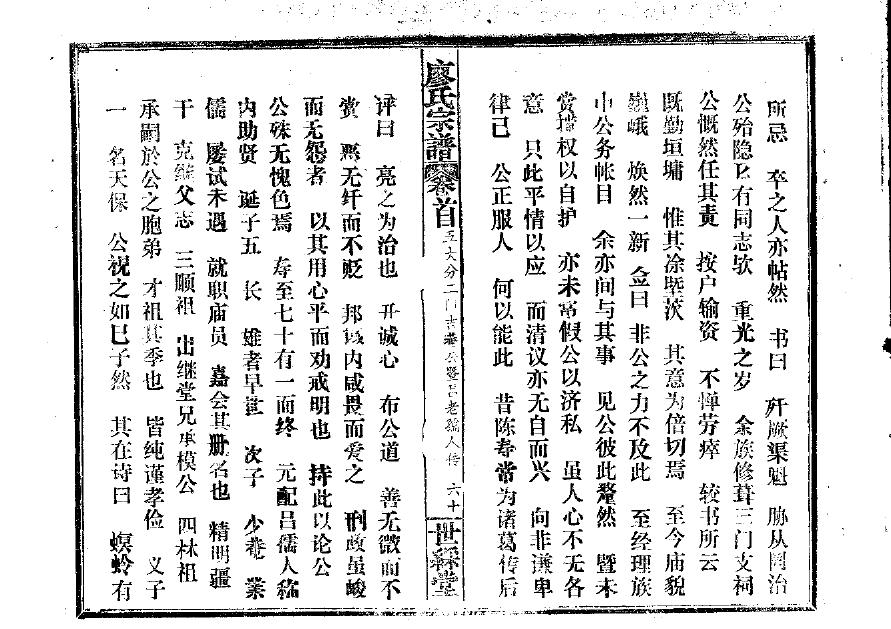 所忌 卒之人亦帖然 书曰 歼厥渠魁 胁从罔治
公殆隐己有同志欤 重光之岁 余族修葺三门支祠
公慨然任其责 按户输资 不惮劳瘁 较书所云
既勤垣墉 惟其涂塈茨 其意为倍切焉 至今庙貌
巍峨 焕然一新 佥曰 非公之力不及此 至经理族
中公务帐目 余亦间与其事 见公彼此釐然 暨未
赏擅权以自护 亦未常假公以济私 虽人心不无各
意 只此平情以应 而清议亦无自而兴 向非谦卑
律己 公正服人 何以能此 昔陈寿常为诸葛传后
廖氏宗谱 卷首 五大分二门吉菴公暨吕老孺人传 六十 世綵堂
评曰 亮之为治也 开诚心 布公道 善无微而不
赏 恶无纤而不贬 邦域内咸畏而爱之 刑政虽峻
而无怨者 以其用心平而劝戒明也 持此以论公
公殊无愧色焉 寿至七十有一而终 元配吕孺人称
内助贤 诞子五 长 雄者早逝 次子 少菴 業
儒 屡试未遇 就职庙员 嘉会其册名也 精明疆
干 克继父志 三顺祖 出继堂兄承模公 四林祖
承嗣於公之胞弟 才祖其季也 皆纯谨孝俭 义子
一 名天保 公视之如己子然 其在诗曰 螟蛉有